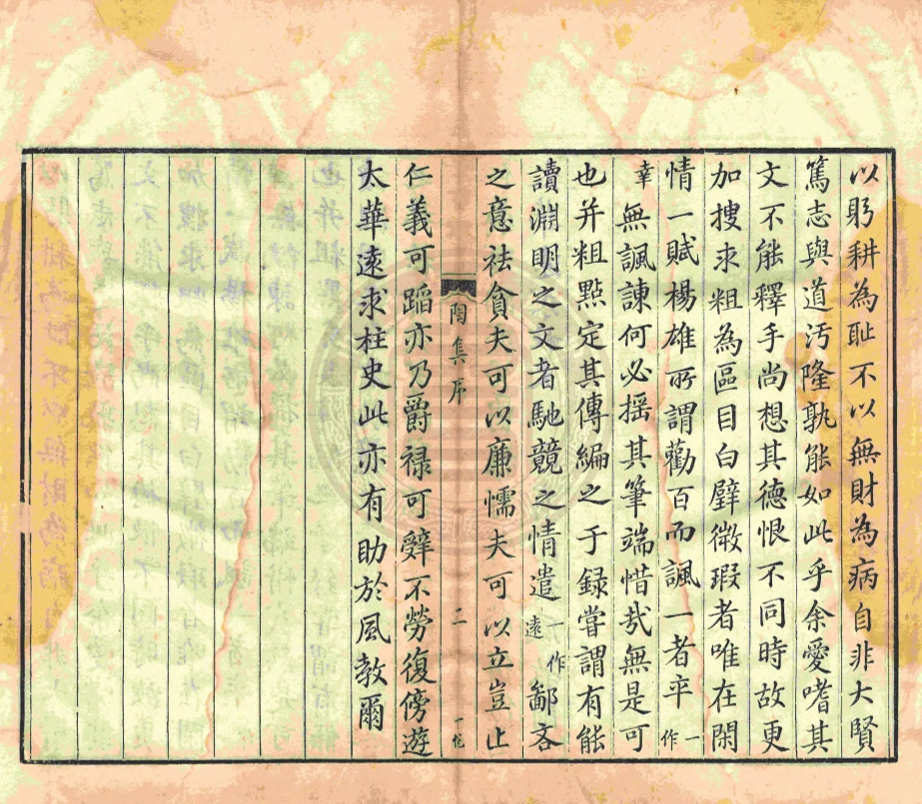 以躬耕為耻不以無財為病自非大賢
篤志與道汚隆孰能如此乎余愛嗜其
文不能釋手尚想其德恨不同時故更
加搜求粗為區目白璧微瑕者唯在閑
情一賦楊雄所謂勸百而諷一者卒一作
幸無諷諫何必摇其筆端惜㢤無是可
也并粗點定其傳編之于録嘗謂有能
讀淵明之文者馳競之情遣一作遠鄙吝
之意祛貪夫可以廉懦夫可以立豈止
陶集序
二
仁義可蹈亦乃爵禄可辭不勞復傍遊
太華遠求柱史此亦有助於風教爾